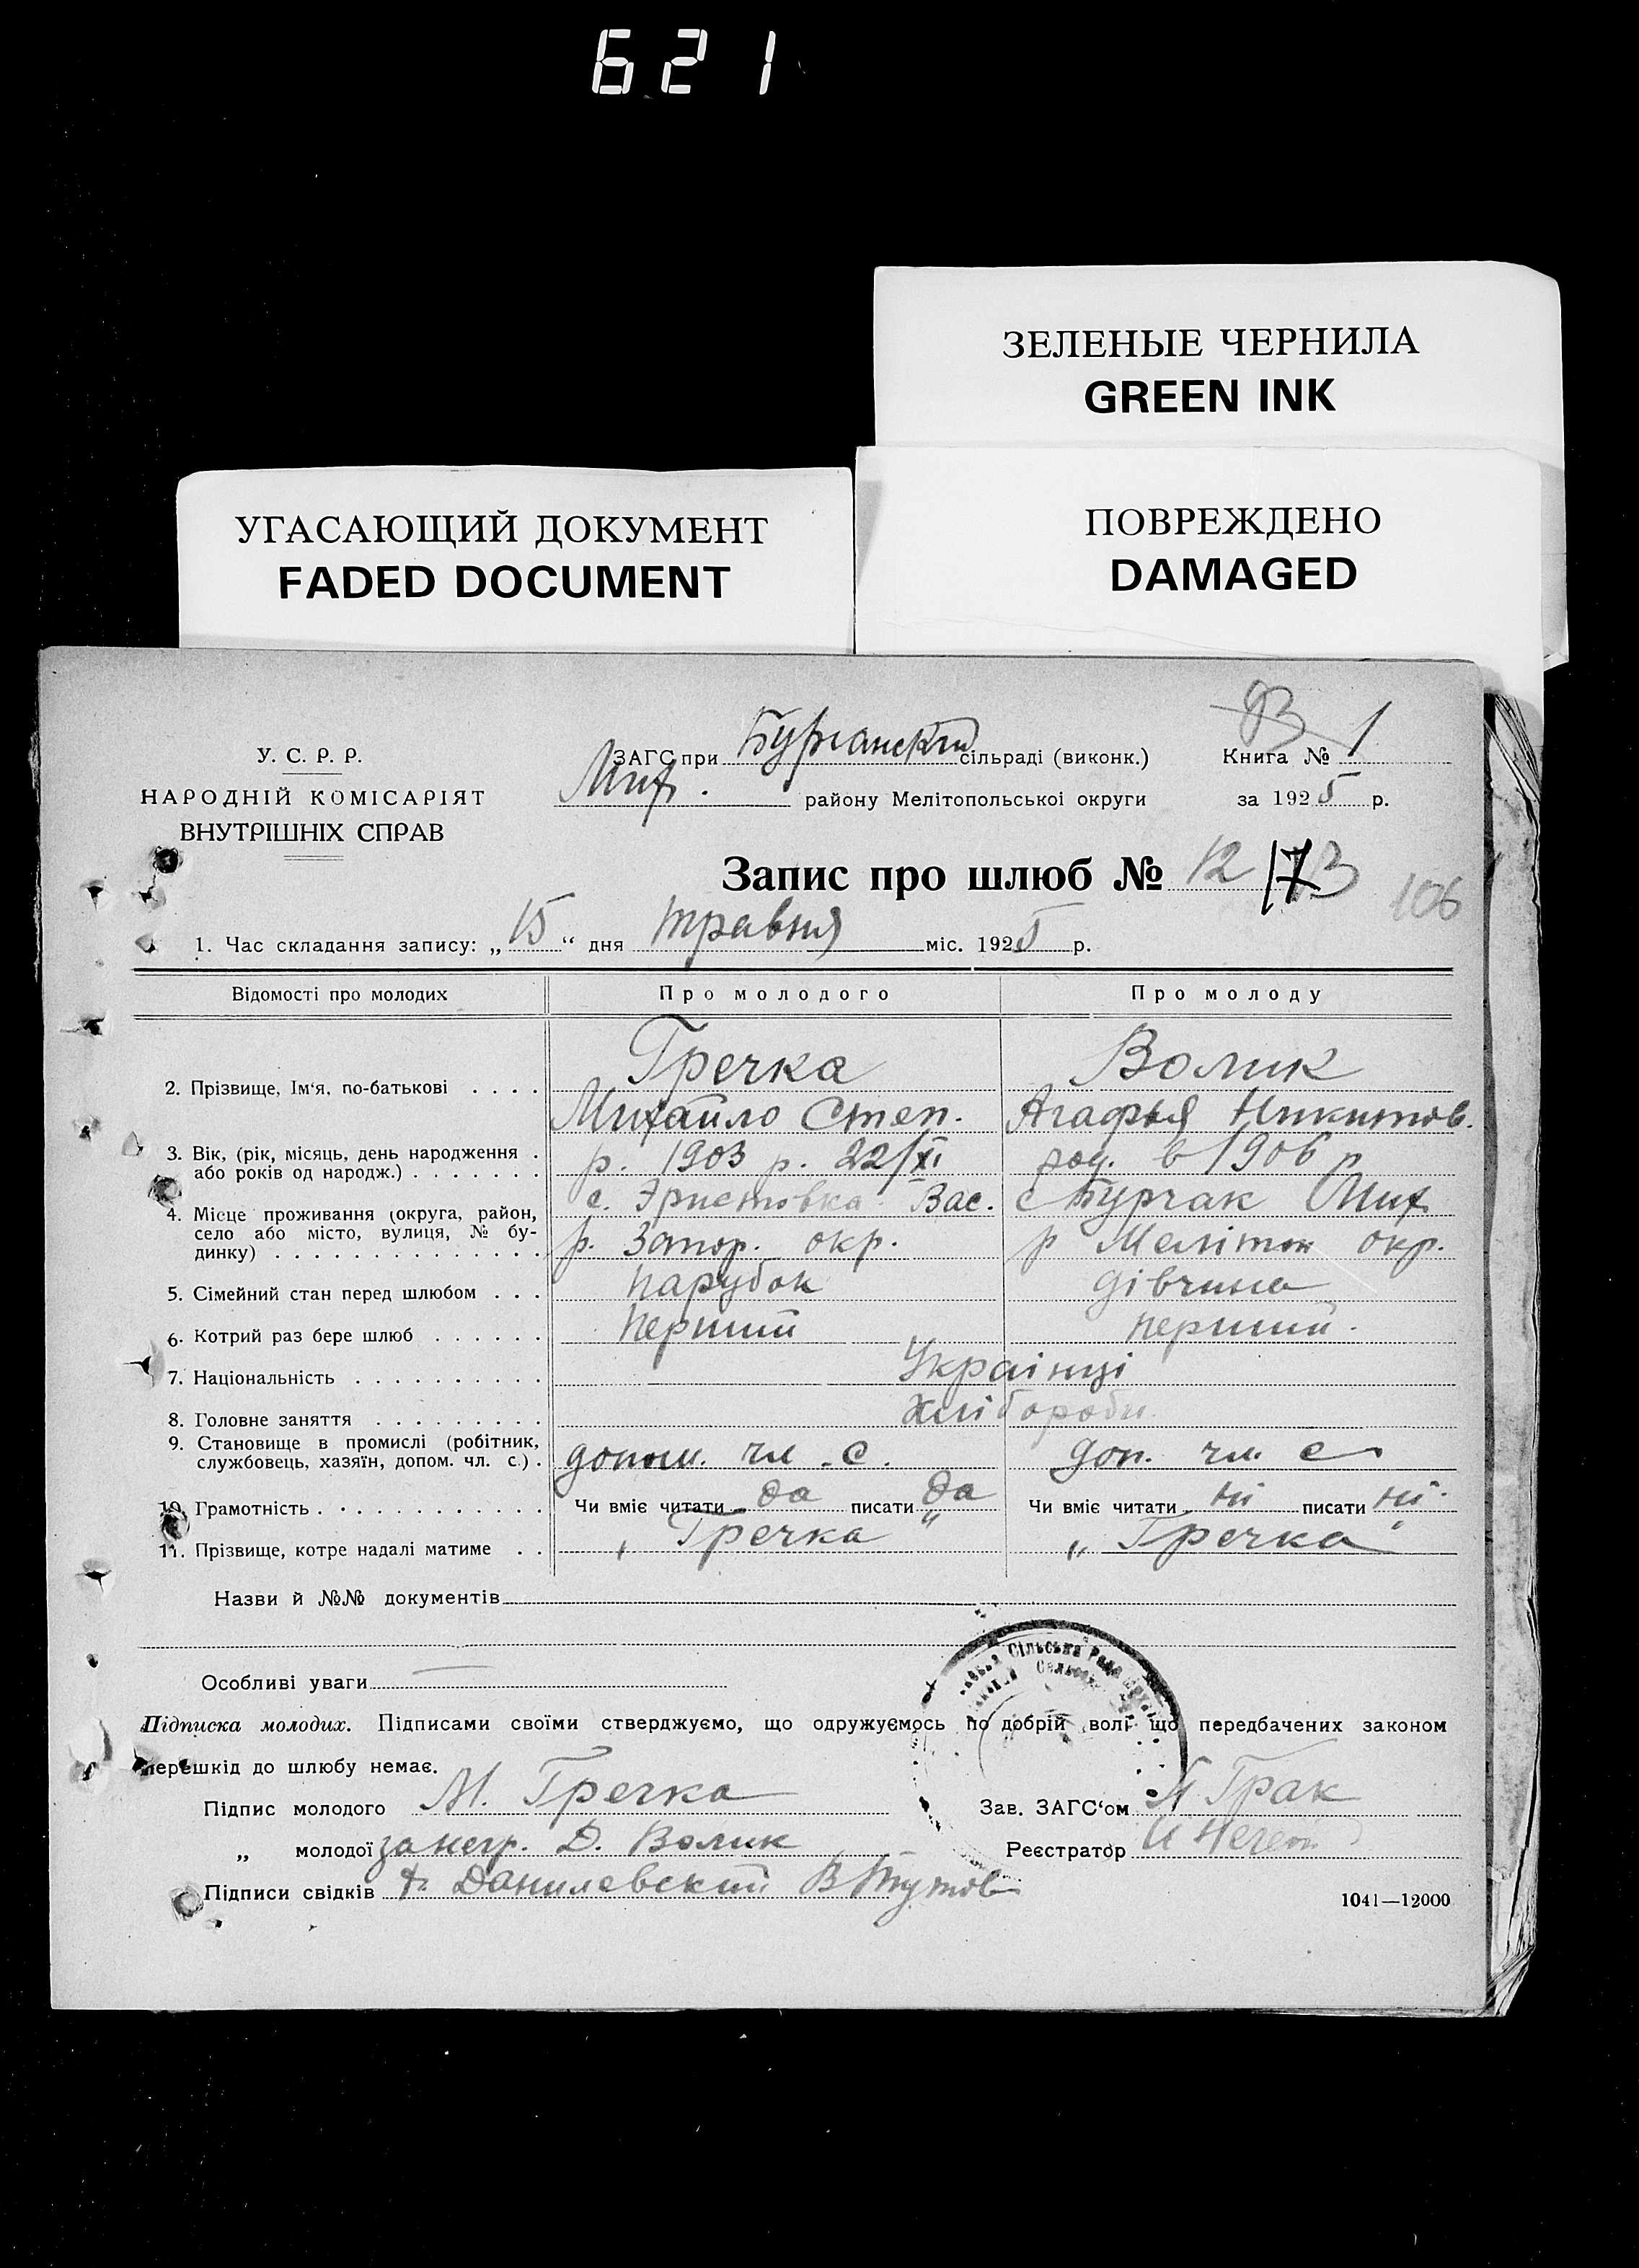 621
ЗЕЛЕНЫЕ ЧЕРНИЛА
GREEN INK
УГАСАЮЩИЙ ДОКУМЕНТ
FADED DOCUMENT
ПОВРЕЖДЕНО
DAMAGED
У. С. Р. Р.
НАРОДНІЙ КОМІСАРІЯТ
ВНУТРІШНІХ СПРАВ
ЗАГС при сільраді (виконк.)
Мих. району Мелітопольської округи
Книга № 1
за 1925 р.
Запис про шлюб № 12/73
106
1. Час складання запису: „15“ дня травня міс. 1925 р.
Відомості про молодих Про молодого Про молоду
Гречка Волик
2. Прізвище, Ім‘я, по-батькові . . . . Михайло Степ. Агафья Никитов.
3. Вік, (рік, місяць, день народження . або років од народж.) . . . . . . . р. 1903 р. 22/XI род. в 1906 р
4. Місце проживання (округа, район, село або місто, вулиця, № будинку) . . . . . . . . . . . . . . с. Эристовка Вас. с Бурчак Мих
р. Запор. окр. р Меліт окр.
5. Сімейний стан перед шлюбом . . . парубок дівчина
6. Котрий раз бере шлюб . . . . . . перший перший.
7. Національність . . . . . . . . . . Українці
8. Головне заняття . . . . . . . . . хлібороби
9. Становище в промислі (робітник, службовець, хазяїн, допом. чл. с.) . допом. чл. с. доп. чл. с
10. Грамотність . . . . . . . . . . . . Чи вміє читати да писати да Чи вміє читати ні писати ні
11. Прізвище, котре надалі матиме . . „Гречка“ „Гречка“
Назви й №№ документів
Особливі уваги
Підписка молодих. Підписами своїми стверджуємо, що одружуємось по добрій волі що передбачених законом
перешкід до шлюбу немає.
Підпис молодого М. Гречка
Зав. ЗАГС‘ом Грак
„ молодої за негр. Д. Волик
Реєстратор
Підписи свідків Данилевский В
1041—12000
Сільська Рада